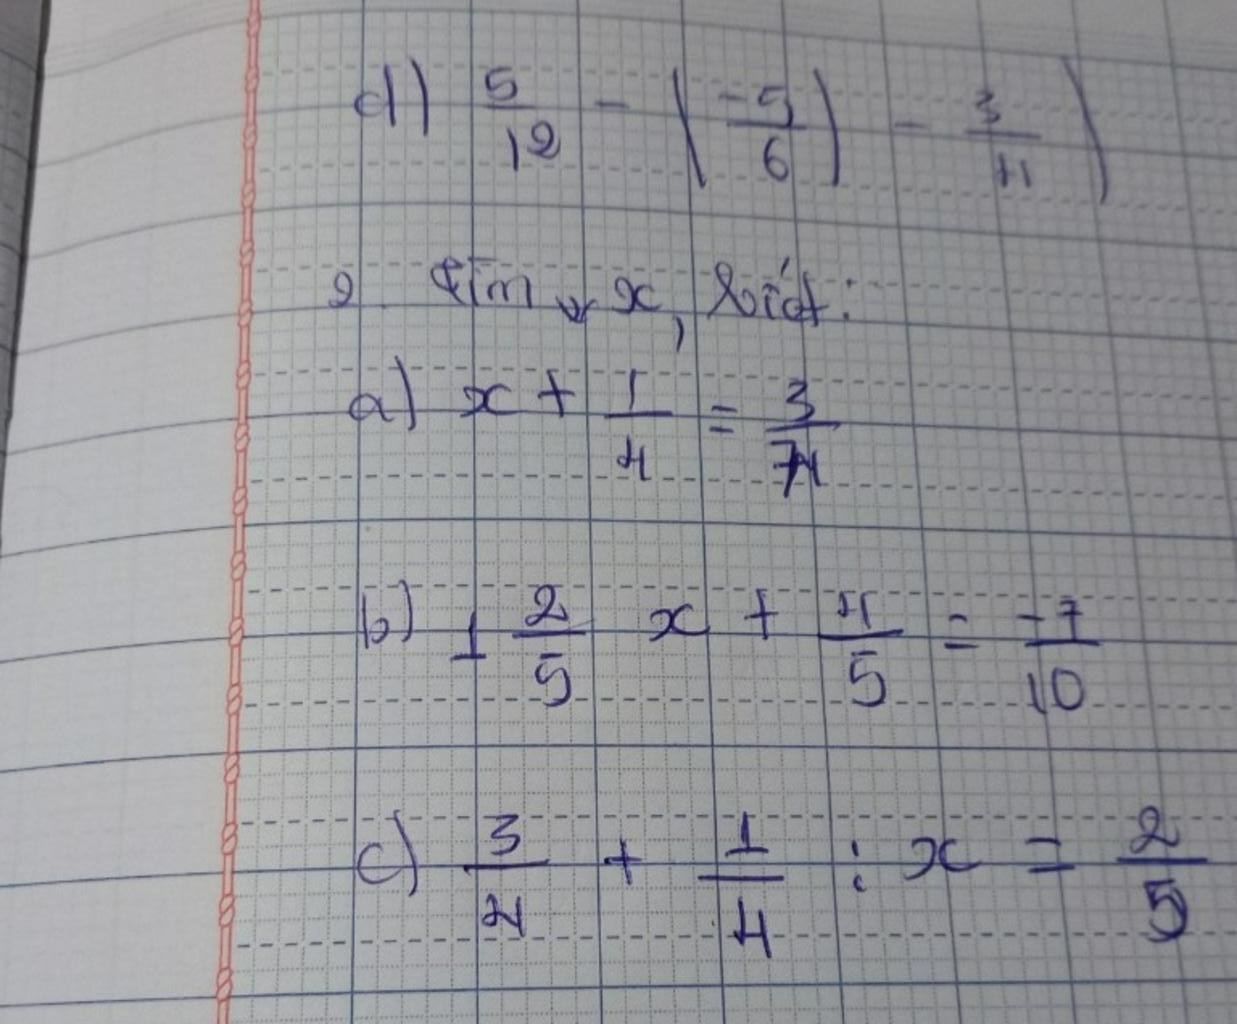 d) 5/12 - ( -5/6 ) - 3/11 )
2. Tìm x, biết:
a) x + 1/4 = 3/4
b) 1 2/5 x + 4/5 = -7/10
c) 3/4 + 1/4 : x = 2/5